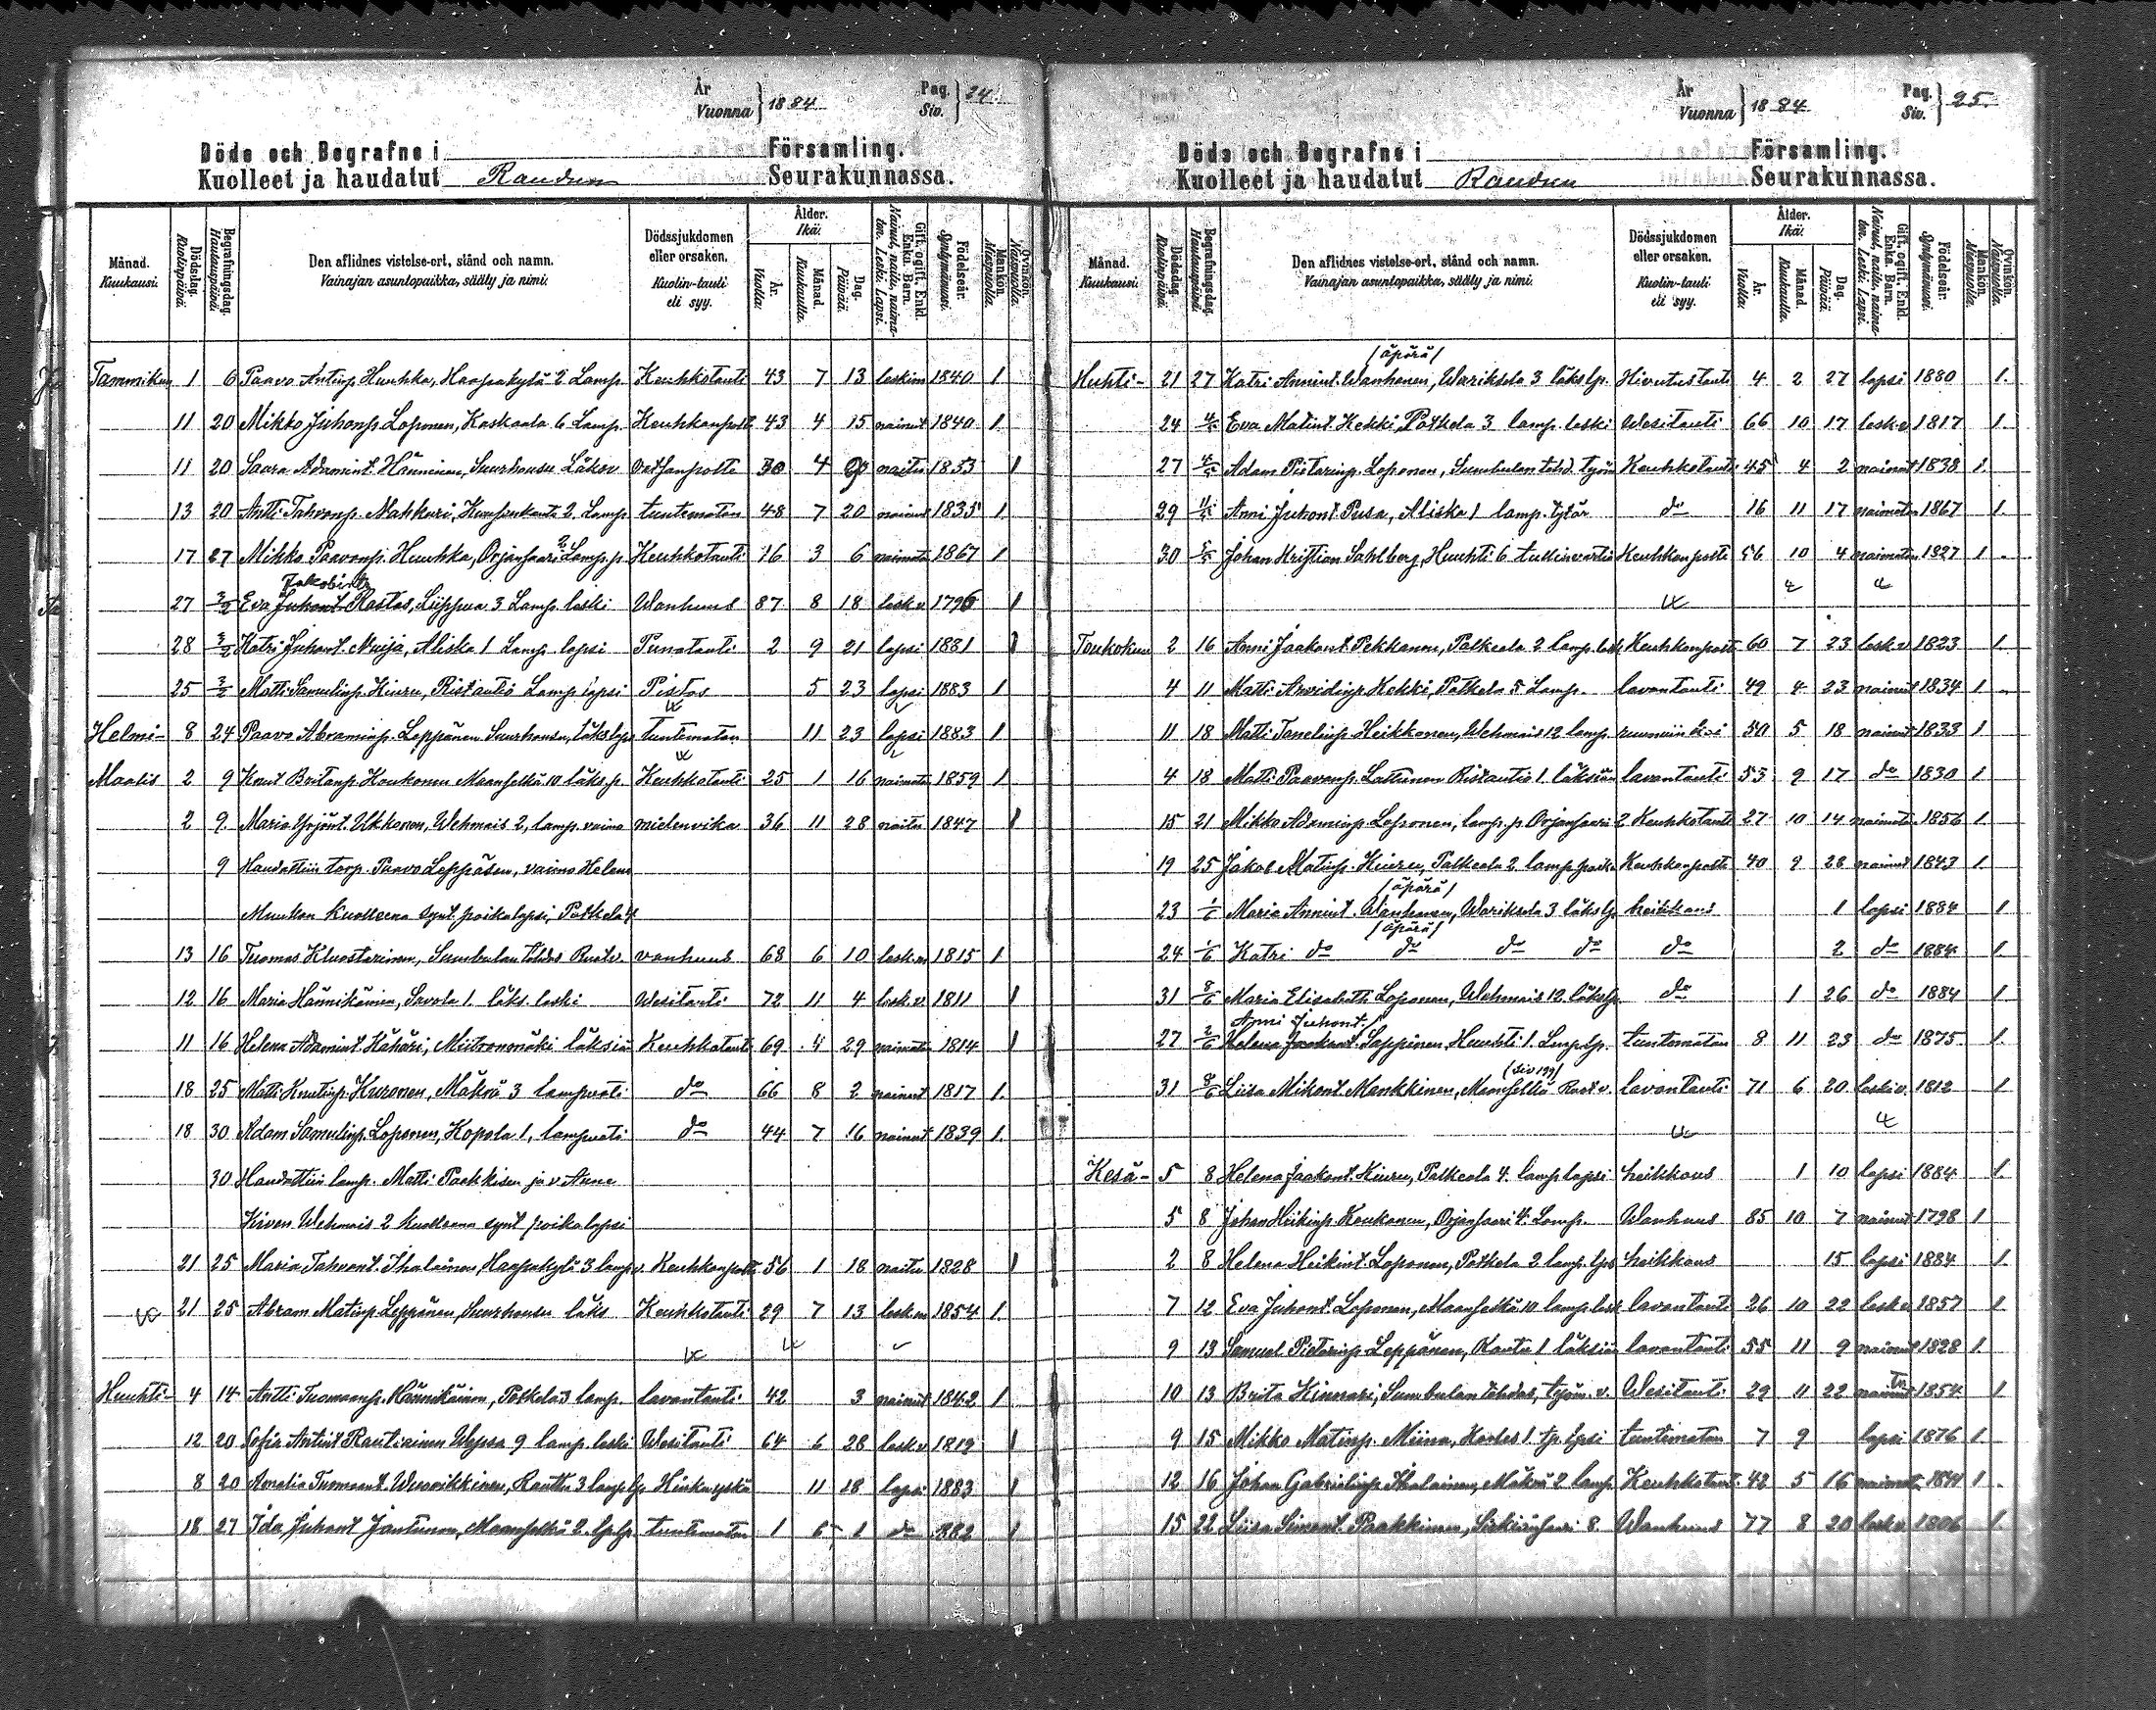 År
Vuonna } 1884
Pag.
Siv. } 24.
Döde och Begrafne i Församling.
Kuolleet ja haudatut Raudun Seurakunnassa.
Månad. Kuukausi.
Dödsdag. Kuolinpäivä.
Begrafningsdag. Hautauspäivä.
Den aflidnes vistelse-ort, stånd och namn.
Vainajan asuntopaikka, sääty ja nimi.
Dödssjukdomen eller orsaken.
Kuolin-tauti eli syy.
Ålder. Ikä.
År. Vuotta.
Månad. Kuukautta.
Dag. Päivää.
Gift, ogift, Enkl. Enka. Barn.
Nainut, naitu, naimaton. Leski. Lapsi.
Födelseår. Syntymävuosi.
Mankön. Miespuolia.
Qvinkön. Naispuolia.
Tammikuu 1 6 Paavo Antinp. Huuhka, Haapakylä 2 Lamp. Keuhkotauti 43 7 13 leskim 1840 1
11 20 Mikko Juhonp. Loponen, Kaskaala 6 Lamp. Keuhkonpoltt 43 4 15 nainut 1840 1.
11 20 Saara Adamint. Hänninen, Suurhousu Läksv 30 4 naitu 1853 1
13 20 Antti Tahvonp. Nahkuri, 2. Lamp tuntematon 48 7 20 nainut 1835 1
17 27 Mikko Paavonp. Huuhka, Orjansaari 2 Lamp.p Keuhkotauti 16 3 6 naimato 1867 1
Jakobintr
27 3/2 Eva Juhont. Rastas, Liippua 3 Lamp. leski Wanhuus 87 8 18 lesk.v 1796 1
28 3/2 Katri Juhont. Muija, Aliska 1 Lamp. lapsi Punatauti 2 9 21 lapsi 1881 1
25 3/2 Matti Samulinp. Kiuru, Ristautio Lamp lapsi Pistos 5 23 lapsi 1883 1
Helmi- 8 24 Paavo Abraminp. Leppänen Suurhousu, läks laps tuntematon 11 23 lapsi 1883 1
Maalis 2 9 Knut Britanp. Koukonen Maanselkä 10 läks.p. Keuhkotauti 25 1 16 naimato 1859 1
2 9. Maria Yrjönt. Ukkonen, Wehmais 2, lamp. vaimo mielenvika 36 11 28 naitu 1847 1
9 Haudattiin torp. Paavo Leppäsen, vaimo Helena
Muukan kuolleena synt. poikalapsi, Potkela 4
13 16 Tuomas Kluostarinen, Sumbulan töhdas Ruotv. vanhuus 68 6 10 lesk.m 1815 1.
12 16 Maria Hännikäinen, Savola 1. läks. leski Wesitauti 72 11 4 lesk.v 1811 1
11 16 Helena Adamint. Kähäri, Miitronmäki läksiä Keuhkotauti 69 4 29 naimato 1814 1
18 25 Matti Knutinp. Kuronen, Mäkrä 3 lampuoti do 66 8 2 nainut 1817 1.
18 30 Adam Samulinp. Loponen, Kopola 1, lampuoti do 44 7 16 nainut 1839 1.
30 Haudattiin lamp. Matti Paakkisen ja v. Anna
Kirven Wehmais 2 kuolleena synt poikalapsi
21 25 Maria Tahvont. Ihalainen, Haapakylä 3 lamp.v. Keuhkonpoltt 56 1 18 naitu 1828 1
21 25 Abram Matinp. Leppänen, Suurhousu läks Keuhkotauti 29 7 13 lesk.m 1854 1.
Huhti- 4 14 Antti Tuomaanp. Hännikäinen, Potkela 3 lamp. lavantauti 42 3 nainut 1842 1
12 20 Sofia Antint Rautiainen Wepsa 9 lamp. leski Wesitauti 64 6 28 lesk.v 1819 1
8 20 Amalia Tuomaant. Wesvikkinen, Rautu 3 lamp.lp. Hinkuyskä 11 18 lapsi 1883 1
18 27 Ida Juhont Jantunen, Maanselkä 2. lp.lp. tuntematon 1 6 1 do 1882 1
År
Vuonna } 1884
Pag.
Siv. } 25.
Döde och Begrafne i Församling.
Kuolleet ja haudatut Raudun Seurakunnassa.
Månad. Kuukausi.
Dödsdag. Kuolinpäivä.
Begrafningsdag. Hautauspäivä.
Den aflidnes vistelse-ort, stånd och namn.
Vainajan asuntopaikka, sääty ja nimi.
Dödssjukdomen eller orsaken.
Kuolin-tauti eli syy.
Ålder. Ikä.
År. Vuotta.
Månad. Kuukautta.
Dag. Päivää.
Gift, ogift, Enkl. Enka. Barn.
Nainut, naitu, naimaton. Leski. Lapsi.
Födelseår. Syntymävuosi.
Mankön. Miespuolia.
Qvinkön. Naispuolia.
/äpärä/
Huhti- 21 27 Katri Annint. Wanhanen, Wariksela 3 läks lp. Hivutustauti 4 2 27 lapsi 1880 1.
24 4/5 Eva Matint. Kekki, Potkela 3 lamp. leski Wesitauti 66 10 17 lesk.v 1817 1.
27 4/5 Adam Pietarinp. Loponen, Sumbulan tehd. työm Keuhkotauti 45 4 2 nainut 1838 1.
29 11/5 Anni Juhont. Pusa, Aliska 1 lamp. tytär do 16 11 17 naimaton 1867 1.
30 5/5 Johan Kristian Sahlberg, Huuhti 6 tullinvartia Keuhkonpoltt 56 10 4 naimaton 1827 1
Toukokuu 2 16 Anni Jaakont. Pekkanen, Palkeala 2 lamp. lesk Keuhkonpoltt 60 7 23 lesk.v 1823 1.
4 11 Matti Arvidinp. Kekki, Potkela 5 Lamp. lavantauti 49 4 23 nainut 1834 1
11 18 Matti Tanelinp. Heikkonen, Wehmais 12 lamp. 50 5 18 nainut 1833 1
4 18 Matti Paavonp. Lattunen Ristautio 1. läksiän lavantauti 53 9 17 do 1830 1
15 21 Mikko Adaminp. Loponen, lamp.p Orjansaari 2 Keuhkotauti 27 10 14 naimato 1856 1
19 25 Jakob Matinp. Kiuru, Palkeala 2 lamp. poika Keuhkonpoltt 40 9 28 nainut 1843 1.
/äpärä/
23 1/6 Maria Annint. Wanhanen, Wariksela 3 läks lp heikkous 1 lapsi 1884 1
/äpärä/
24 1/6 Katri do do do do do 2 do 1884. 1.
31 8/6 Maria Elisabeth Loponen, Wehmais 12 läkslp do 1 26 do 1884 1.
Anni Juhont.
27 2/6 Helena Jaakont Sappinen Huuhti 1. Lmp.lp. tuntematon 8 11 23 do 1875. 1.
(Siv 199)
31 8/6 Liisa Mikont. Mankkinen, Maanselkä Ruot v. lavantauti 71 6 20 leski v. 1812 1
Kesä- 5 8 Helena Jaakont. Kiuru, Palkeala 4. lamp lapsi heikkous 1 10 lapsi 1884 1.
5 8 Johan Heikinp. Koukonen, Orjansaari 4. Lamp. Wanhuus 85 10 7 nainut 1798 1
2 8 Helena Heikint. Loponen, Potkela 2 lamp. lps heikkous 15 lapsi 1884 1.
7 12 Eva Juhont. Loponen, Maanselkä 10 lamp. lesk lavantauti 26 10 22 lesk.v 1857 1
9 13 Samuel Pietarinp. Leppänen, Rautu 1 läksiä lavantauti 55 11 9 nainut 1828 1.
10 13 Brita Kinnari, Sumbulan tehdas, työm. v. Wesitauti 29 11 22 naitu 1854 1
9 15 Mikko Matinp. Miina, Karles 1. tp lpsi tuntematon 7 9 lapsi 1876 1
12 16 Johan Gabrielinp. Ihalainen, Mäkrä 2 lamp Keuhkotaut. 42 5 16 naimato 1841 1
15 22 Liisa Simont. Paakkinen, Sirkiänsaari 8. Wanhuus 77 8 20 lesk.v 1806 1.